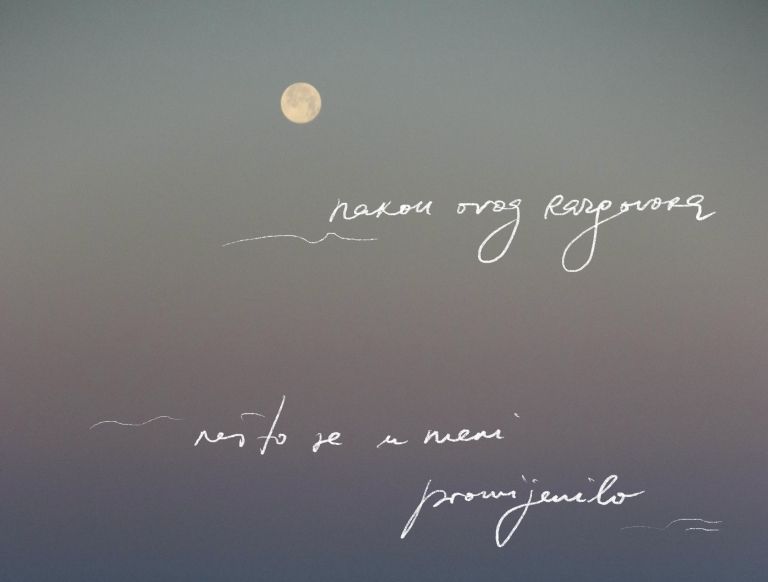 nakon ovog razgovora
nešto se u meni
promijenilo